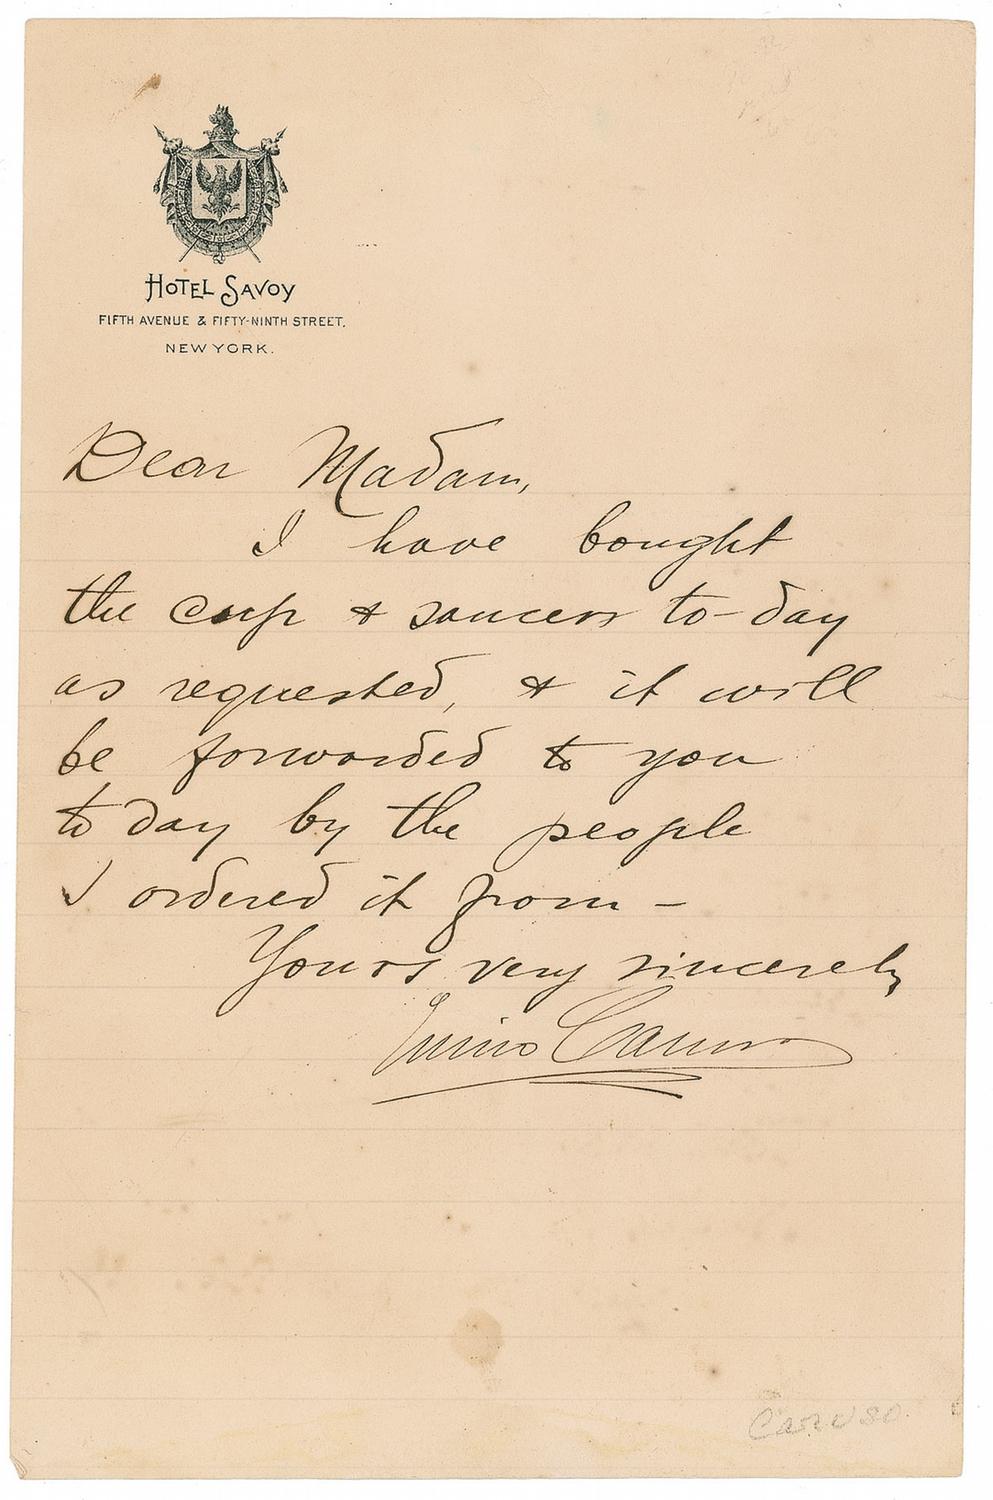 HOTEL SAVOY
FIFTH AVENUE & FIFTY-NINTH STREET.
NEW YORK.
Dear Madam,
I have bought
the cup & saucer to-day
as requested, & it will
be forwarded to you
to day by the people
I ordered it from –
Yours very sincerely
Caruso
Caruso.